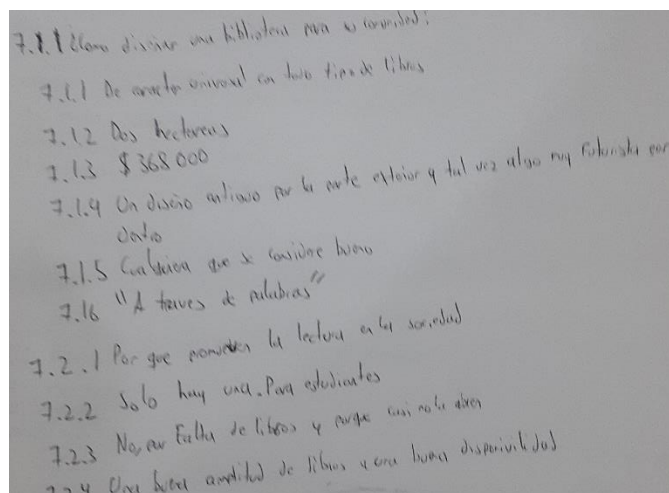 7.1.1 Como diseñar una biblioteca para su comunidad:
7.1.1 De caracter universal con todo tipo de libros
7.1.2 Dos hectareas
7.1.3 $ 368 000
7.1.4 Un diseño antiguo por la parte exterior y tal vez algo muy futurista por
dentro
7.1.5 Cualquiera que se considere bueno
7.16 "A traves de palabras"
7.2.1 Por que promueven la lectura en la sociedad
7.2.2 Solo hay una. Para estudiantes
7.2.3 No, por falta de libros y porque casi no la abren
7.2.4 Una buena amplitud de libros y una buena